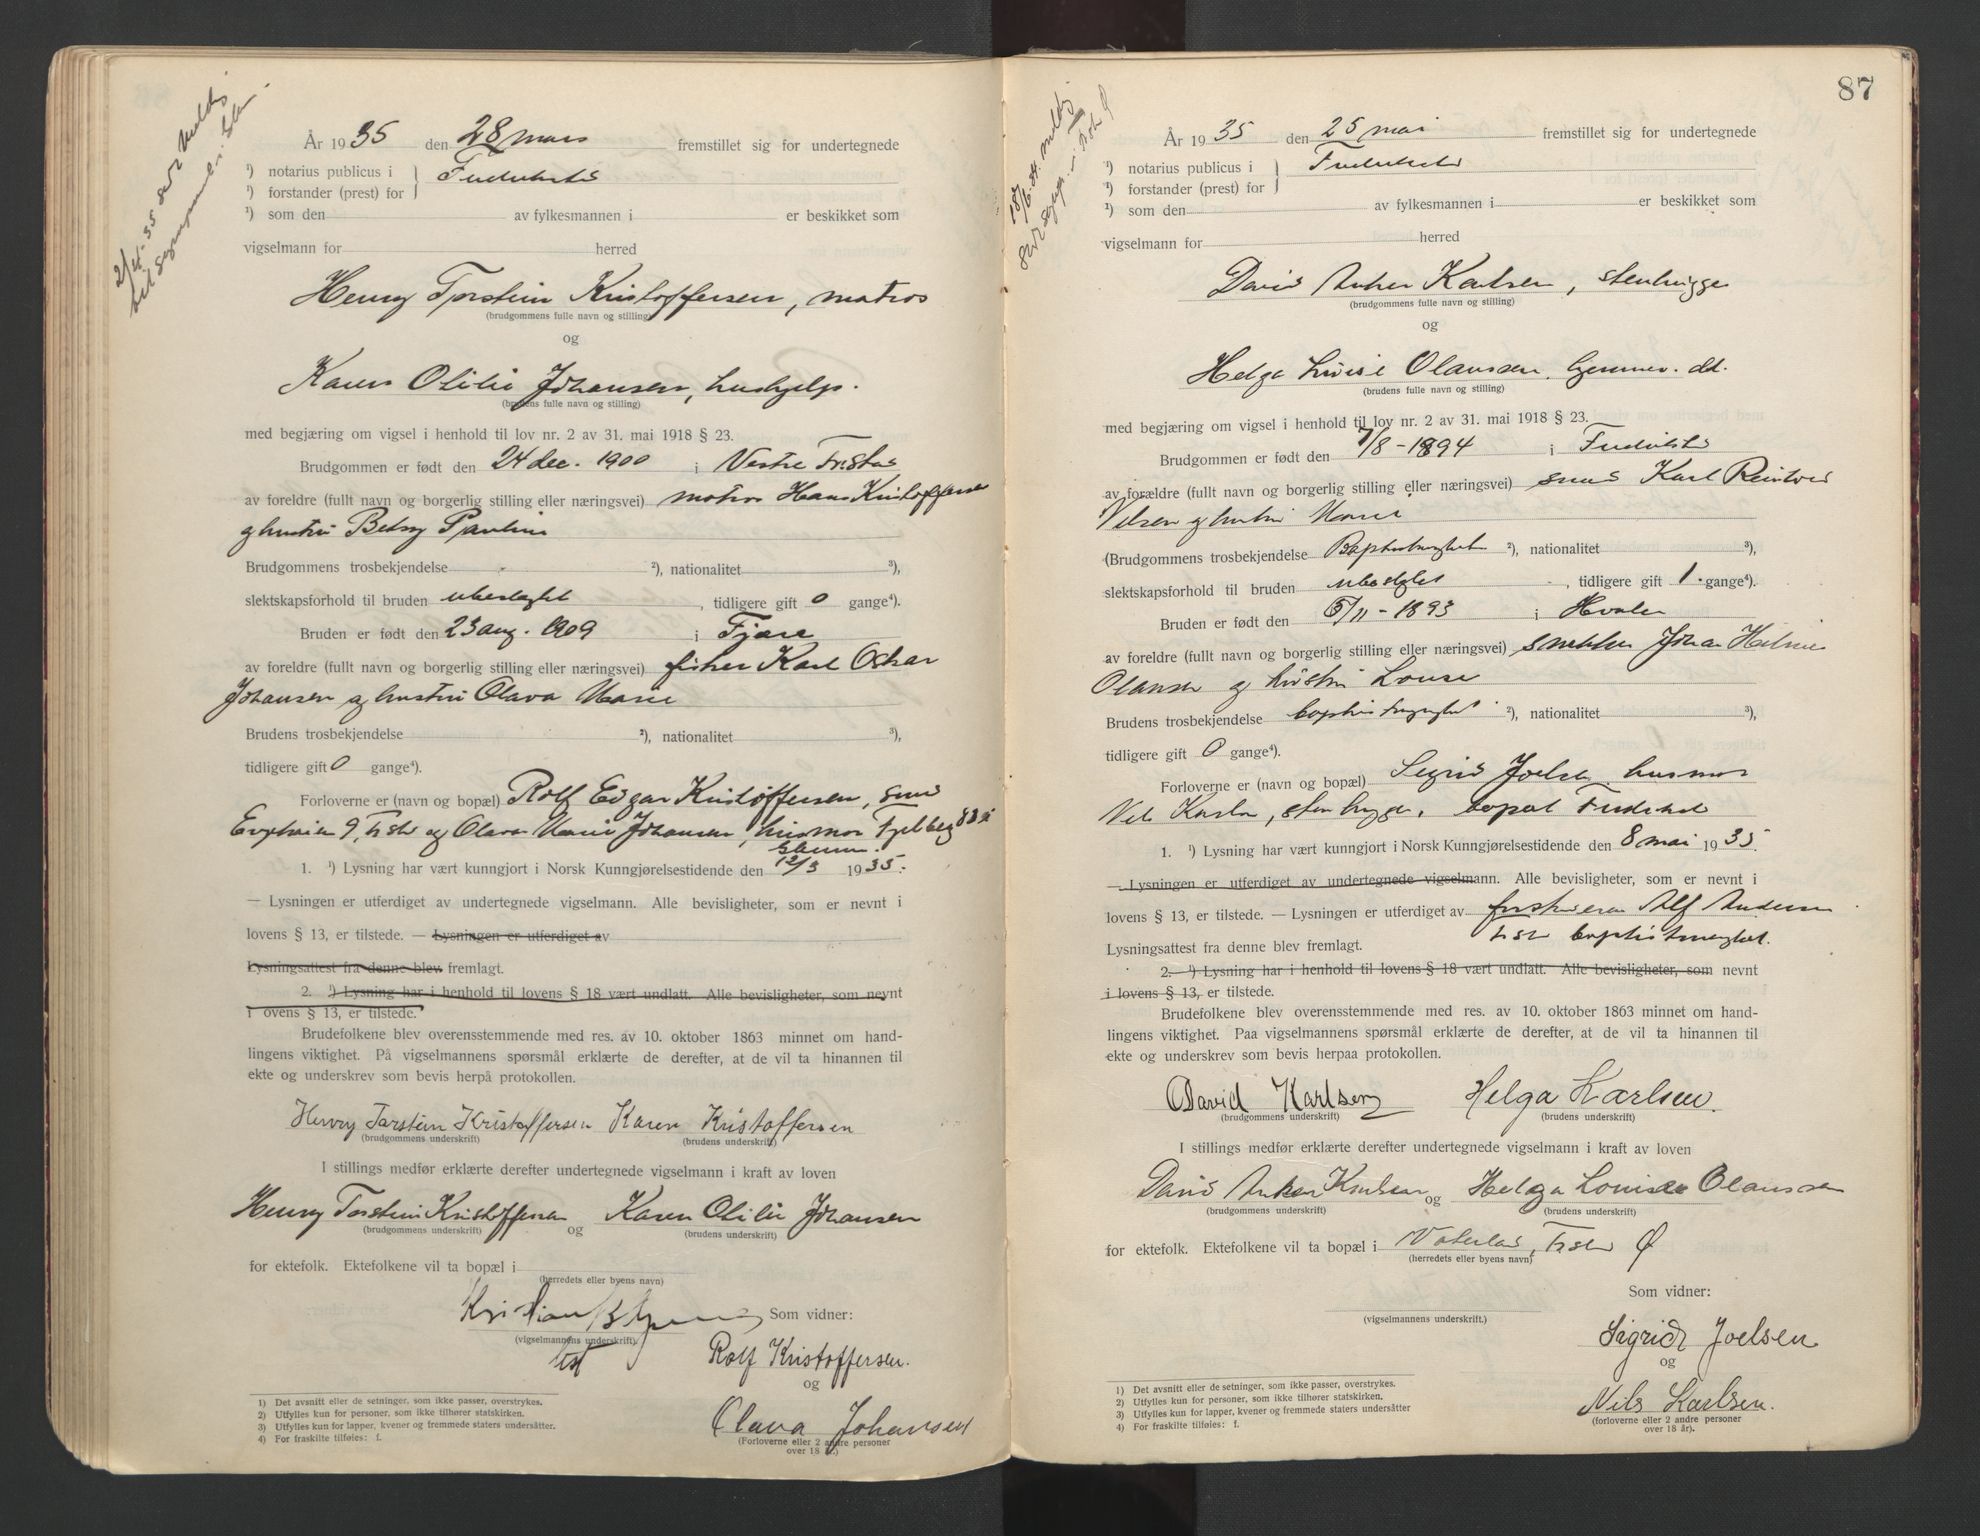 År 1935 den 28 mars fremstillet sig for undertegnede
¹) notarius publicus i
¹) forstander (prest) for
¹) som den av fylkesmannen i er beskikket som
vigselmann for herred
Henry Torstein Kristoffersen, matros
(brudgommens fulle navn og stilling)
og
Karen Otilie Johansen, hushjelp.
(brudens fulle navn og stilling)
med begjæring om vigsel i henhold til lov nr. 2 av 31. mai 1918 § 23.
Brudgommen er født den 24 dec. 1900 i Vestre Fr.stad
av foreldre (fullt navn og borgerlig stilling eller næringsvei) matros Hans Kristoffersen
og hustru Betsy Pauline
Brudgommens trosbekjendelse ²), nationalitet ³),
slektskapsforhold til bruden ubeslægtet, tidligere gift 0 gange⁴).
Bruden er født den 23 aug. 1909 i Fjære
av foreldre (fullt navn og borgerlig stilling eller næringsvei) fisker Karl Oskar
Johansen og hustru Olava Marie
Brudens trosbekjendelse ²), nationalitet ³),
tidligere gift 0 gange⁴).
Forloverne er (navn og bopæl) Rolf Edgar Kristoffersen,
9, Fr.stad og Olava Marie Johansen, husmor
Glemm.
1. ¹) Lysning har vært kunngjort i Norsk Kunngjørelsestidende den 12/3 1935.
— Lysningen er utferdiget av undertegnede vigselmann. Alle bevisligheter, som er nevnt i
lovens § 13, er tilstede. — Lysningen er utferdiget av
Lysningsattest fra denne blev fremlagt.
2. ¹) Lysning har i henhold til lovens § 18 vært undlatt. Alle bevisligheter, som nevnt
i lovens § 13, er tilstede.
Brudefolkene blev overensstemmende med res. av 10. oktober 1863 minnet om hand-
lingens viktighet. På vigselmannens spørsmål erklærte de derefter, at de vil ta hinannen til
ekte og underskrev som bevis herpå protokollen.
Henry Torstein Kristoffersen Karen Kristoffersen
(brudgommens underskrift) (brudens underskrift)
I stillings medfør erklærte derefter undertegnede vigselmann i kraft av loven
Henry Torstein Kristoffersen og Karen Otilie Johansen
(brudgommens underskrift) (brudens underskrift)
for ektefolk. Ektefolkene vil ta bopæl i
(herredets eller byens navn)
Kristian
Som vidner:
(vigselmannens underskrift)
Rolf Kristoffersen.
og
Olava Johansen
(Forloverne eller 2 andre personer
over 18 år.)
1) Det avsnitt eller de setninger, som ikke passer, overstrykes.
2) Utfylles kun for personer, som ikke tilhører statskirken.
3) Utfylles kun for lapper, kvener og fremmede staters undersåtter.
4) For fraskilte tilføies: f.
87
År 1935 den 25 mai fremstillet sig for undertegnede
¹) notarius publicus i
¹) forstander (prest) for
¹) som den av fylkesmannen i er beskikket som
vigselmann for herred
David Anker Karlsen, stenhugger
(brudgommens fulle navn og stilling)
og
Helga Lovise Olaussen, hjemmev. dd.
(brudens fulle navn og stilling)
med begjæring om vigsel i henhold til lov nr. 2 av 31. mai 1918 § 23.
Brudgommen er født den 7/8 - 1894 i
av forældre (fullt navn og borgerlig stilling eller næringsvei) Karl
og hustru Marie
(Brudgommens trosbekjendelse Baptistmenighet ²), nationalitet ³),
slektskapsforhold til bruden ubeslægtet, tidligere gift 1 gange⁴).
Bruden er født den 5/11 - 1893 i Hvaler
av foreldre (fullt navn og borgerlig stilling eller næringsvei) Johan
Olaussen og hustru Lovise
Brudens trosbekjendelse baptistmenighet ²), nationalitet ³),
tidligere gift 0 gange⁴).
Forloverne er (navn og bopæl) Sigrid Joelsen, husmor
Nils Karlsen, stenhugger, bopæl
1. ¹) Lysning har vært kunngjort i Norsk Kunngjørelsestidende den 8 mai 1935.
— Lysningen er utferdiget av undertegnede vigselmann. Alle bevisligheter, som er nevnt i
lovens § 13, er tilstede. — Lysningen er utferdiget av forstander Alf Andersen
Fr.stad baptistmenighet.
Lysningsattest fra denne blev fremlagt.
2. ¹) Lysning har i henhold til lovens § 18 vært undlatt. Alle bevisligheter, som nevnt
i lovens § 13, er tilstede.
Brudefolkene blev overensstemmende med res. av 10. oktober 1863 minnet om hand-
lingens viktighet. Paa vigselmannens spørsmål erklærte de derefter, at de vil ta hinannen til
ekte og underskrev som bevis herpaa protokollen.
David Karlsen Helga Karlsen.
(brudgommens underskrift) (brudens underskrift)
I stillings medfør erklærte derefter undertegnede vigselmann i kraft av loven
David Anker Karlsen og Helga Louise Olaussen
(brudgommens underskrift) (brudens underskrift)
for ektefolk. Ektefolkene vil ta bopæl i Vaterland, Fr.stad Ø
(herredets eller byens navn)
Som vidner:
(vigselmannens underskrift)
Sigrid Joelsen
og
Nils Karlsen.
(forloverne eller 2 andre personer
over 18 år).
1) Det avsnitt eller de setninger, som ikke passer, overstrykes.
2) Utfylles kun for personer, som ikke tilhører statskirken.
3) Utfylles kun for lapper, kvener og fremmede staters undersåtter
4) For fraskilte tilføies: f.